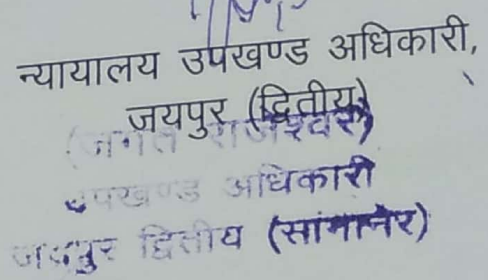 न्यायालय उपखण्ड अधिकारी,
जयपुर (द्वितीय)
(जगत राजेश्वर)
उपखण्ड अधिकारी
जयपुर द्वितीय (सांगानेर)